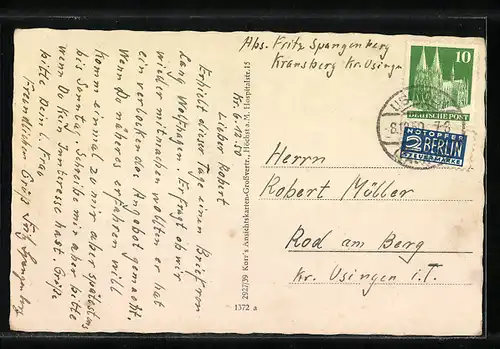 Kr. 6.12.50
Lieber Robert
Erhielt dieser Tage einen Brief von
Lang Wolfhagen. Er fragt ob wir
wieder mitmachen wollten er hat
ein verlockendes Angebot gemacht.
Wenn Du näheres erfahren willst
komm einmal zu mir aber spätestens
bis Sonntag. Schreibe mir aber bitte
wenn Du kein Interesse hast. Grüße
bitte Dein l. Frau
Freundlichen Grüße Fritz Spangenberg
2927/39 Korr's Ansichtskarten-Großvertr., Höchst a.M. Hospitalstr. 15
1372 a
Abs. Fritz Spangenberg
Kransberg Kr. Usingen
10
DEUTSCHE POST
NOTOPFER
2 BERLIN
STEUERMARKE
Herrn
Robert Müller
Rod am Berg
Kr. Usingen i.T.